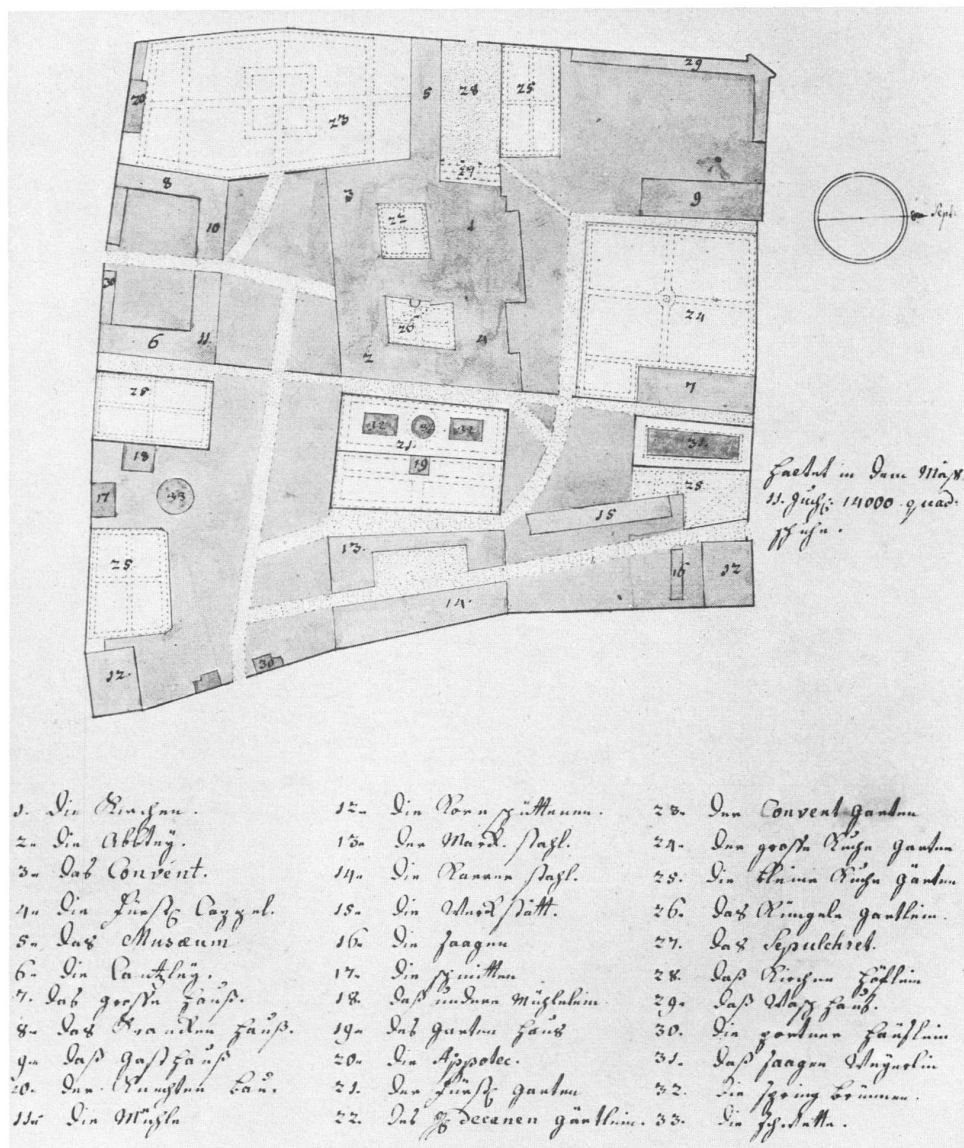 20
23
5
28
25
29
8
3
27
9
10
22
1
Sept.
30
24
26
6
11.
2
4
7
28
12
32
32
31
21.
18
19
25
haltet in dem Maß
17
33
15
11. Juch: 14000 quad:
schuhe.
13.
25
16
12
14.
12.
30
1. Die Kirchen.
2. die Abbteÿ.
3. das Convent.
4. die fürstl: Cappel.
5. das Musæum
6. die Cantzleÿ.
7. das grosse Hauß.
8. das Krancken Hauß.
9. daß Gasthauß
10. der Knechten bau.
11. die Mühle
12. die Kornschüttenen.
13. der Marck. stahl.
14. die Karrer stahl.
15. die Werckstatt.
16. die saagen
17. die schmitten
18. daß undere Mühlelein
19. das garten haus
20. die Appotec.
21. der fürstl: garten
22. des Decanen gärtlein.
23. der Convent garten
24. der grosse Kuche garten
25. die kleine Kuche gärten
26. das Ringele gartlein.
27. das Sepulchret.
28. daß Kirchen höflein
29. daß Wasch hauß.
30. die portner häußlein
31. daß saagen Weÿerlin
32. die spring brünnen.
33. die schwette.